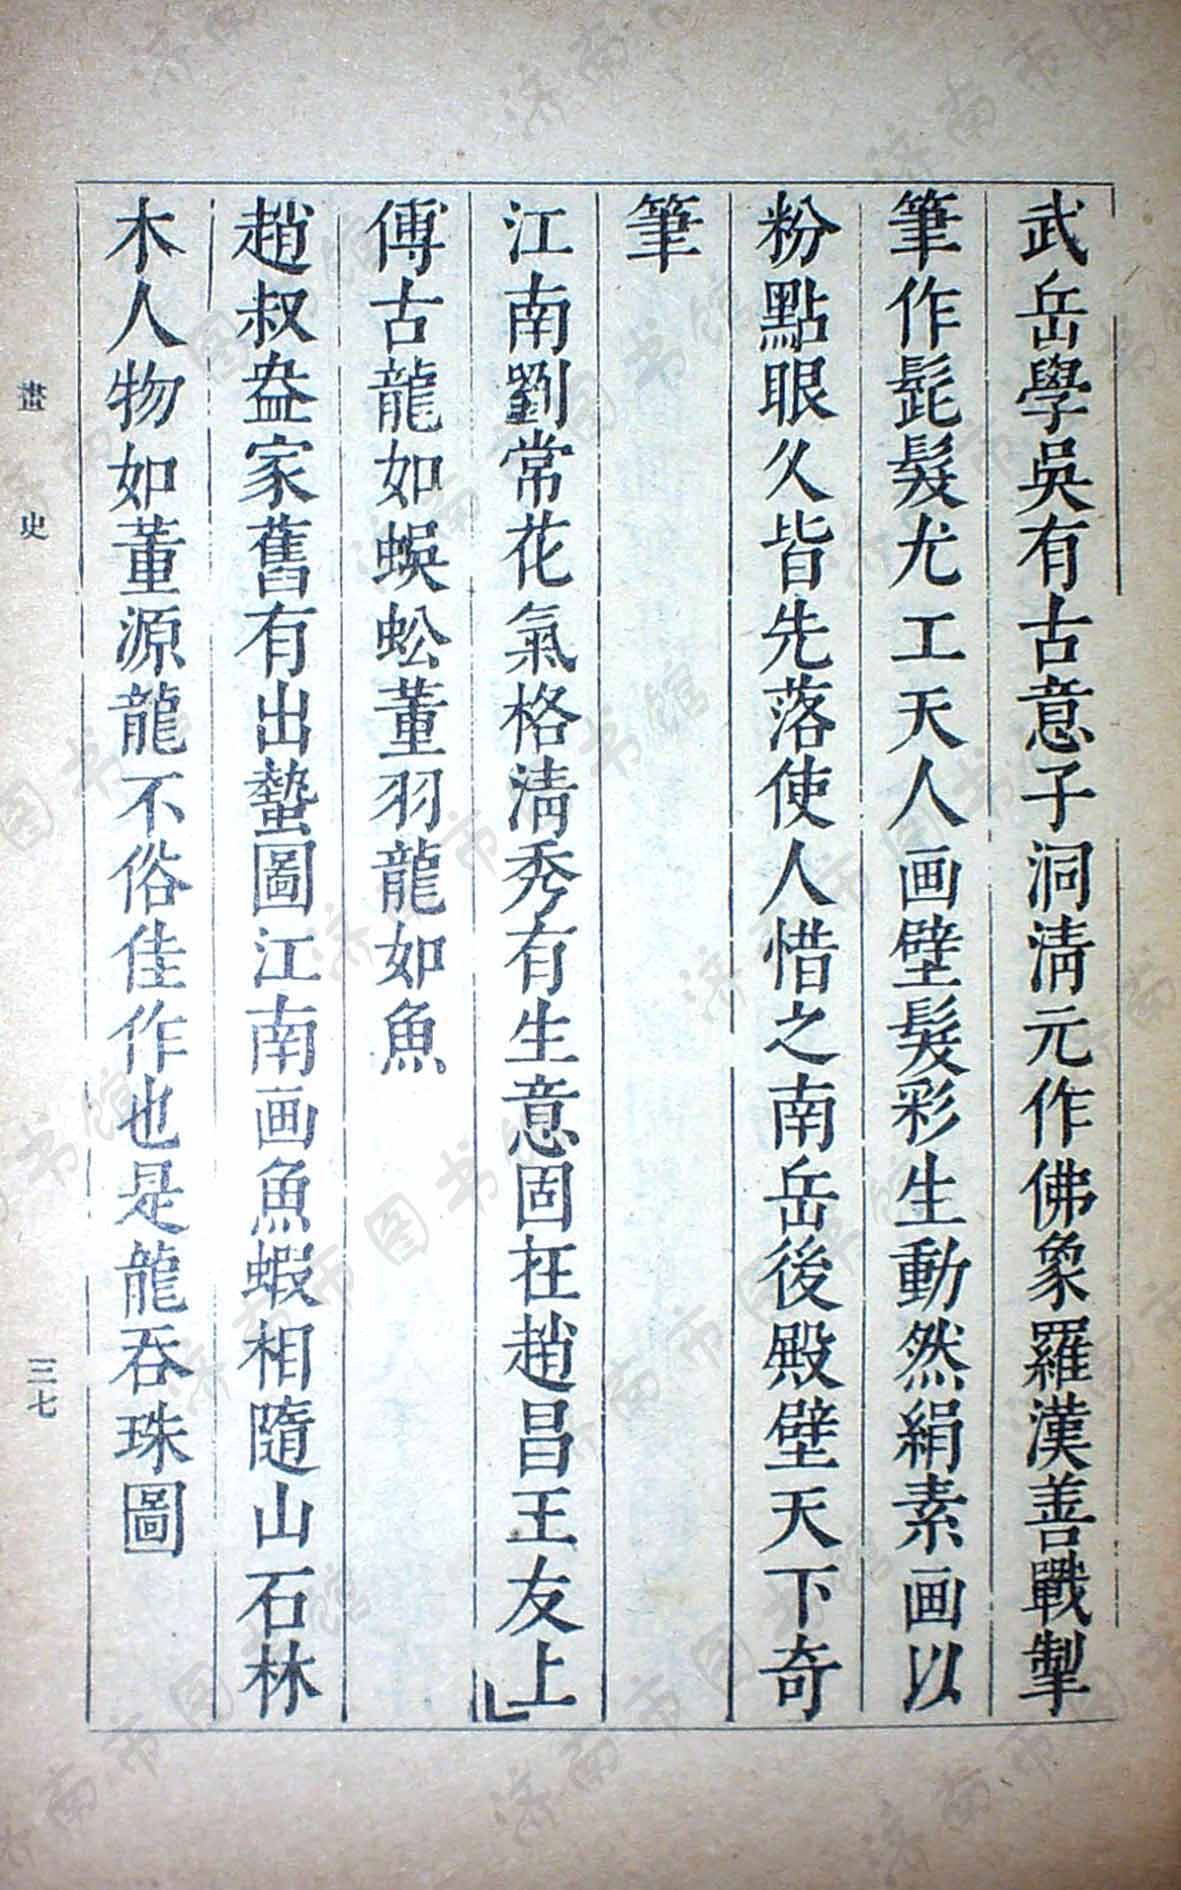 武岳學吳有古意子洞淸元作佛象羅漢善戰掣
筆作髭髮尤工天人画壁髮彩生動然絹素画以
粉點眼久皆先落使人惜之南岳後殿壁天下奇
筆
江南劉常花氣格淸秀有生意固在趙昌王友上
傳古龍如蜈蚣董羽龍如魚
趙叔盎家舊有出蟄圖江南画魚蝦相隨山石林
木人物如董源龍不俗佳作也是龍吞珠圖
畫史
三七
济南市图书馆